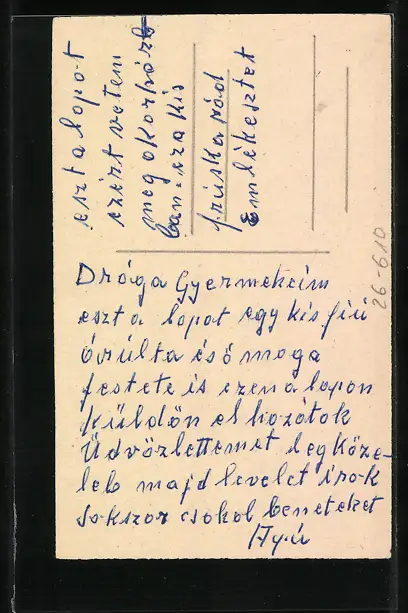 eszt a lopot
ezért vetem
meg okorház
ban = eza kis
friska rád
Emlékesztet
26-610
Dróga Gyermekeim
eszt a lopot egy kis fiú
órúlta és ő moga
festete is ezen a lopon
küldön el hozátok
Üdvözlettemet legköze-
leb majd levelet írok
sokszor csokol beneteket